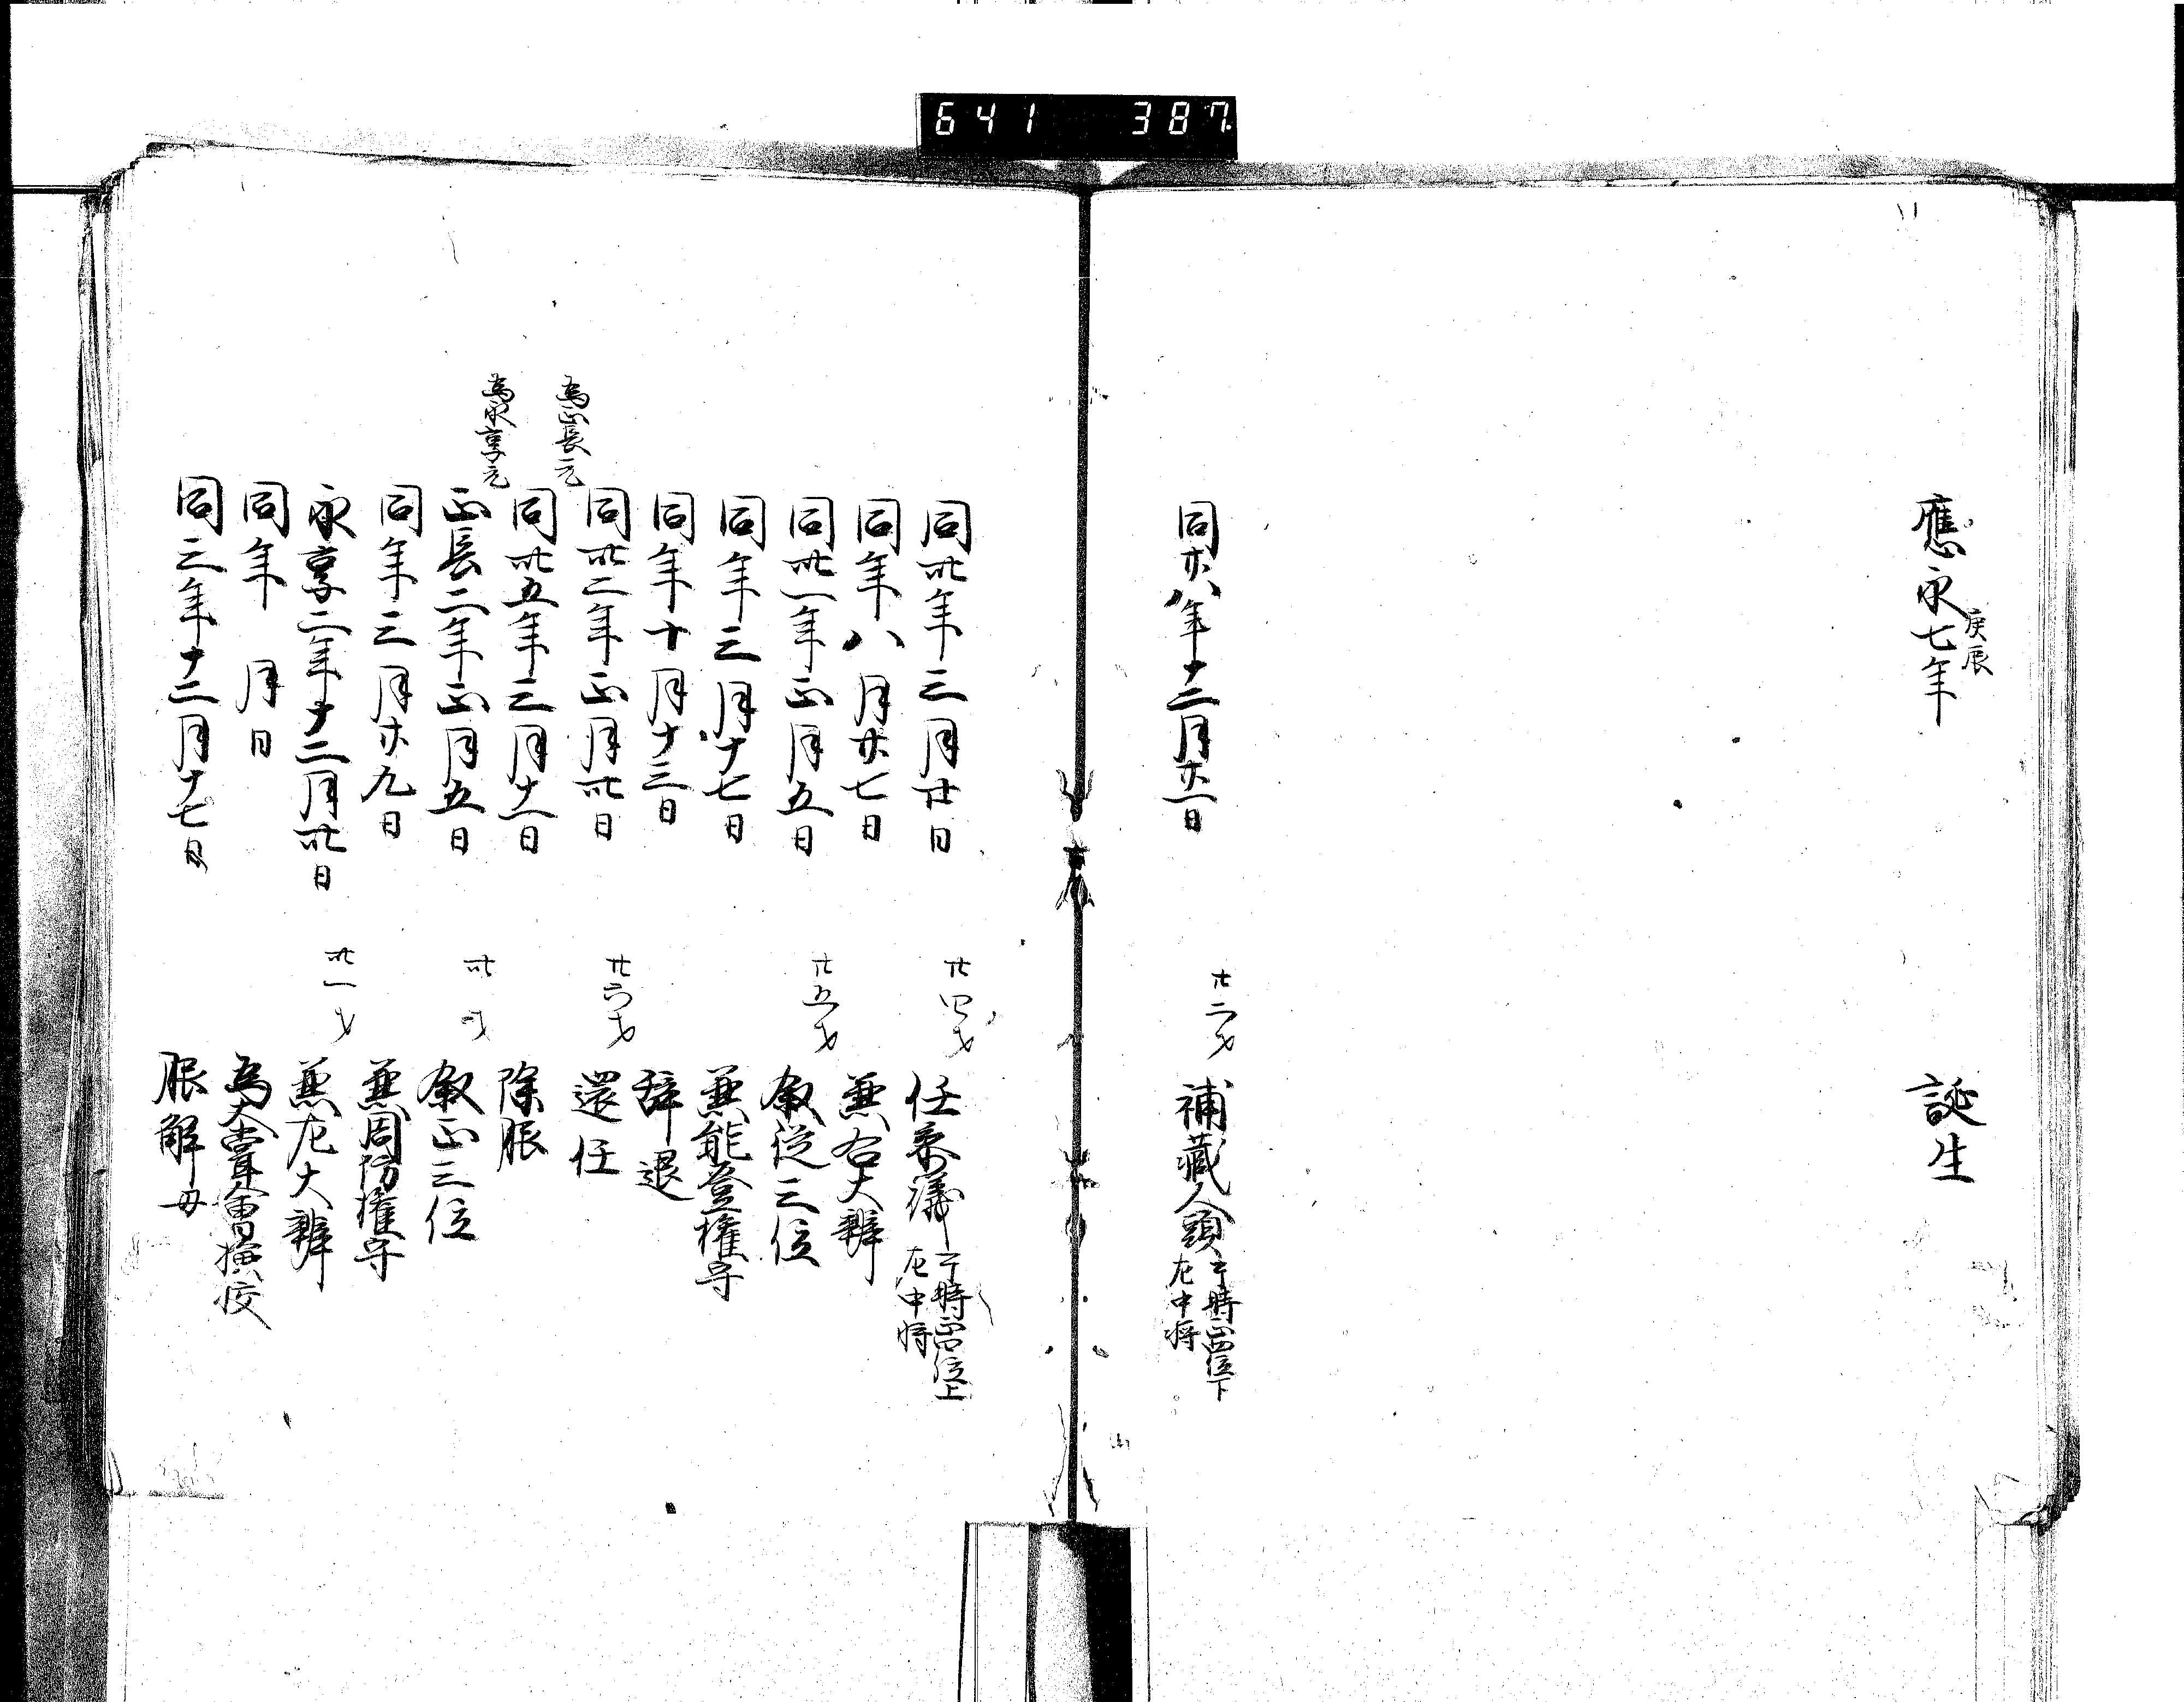 641 387
應永七年 庚辰 誕生
同廿八年十二月廿一日 廿二才 補蔵人頭 于時正四位下 左中将
同卅年三月廿日 廿四才 任参議 于時正四位上 左中将
同年八月廿七日 兼右大辨
同卅一年正月五日 廿五才 叙従三位
同年三月十七日 兼能登権守
同年十月十三日 辞退
同卅二年正月卅日 廿六才 還任
為正長元
同卅五年三月十一日 除服
為永享元
正長二年正月五日 卅才 叙正三位
同年三月廿九日 兼周防権守
永享二年十二月卅日 卅一才 兼左大辨
同年 月 日 為大嘗會検校
同三年十二月十七日 服解 母